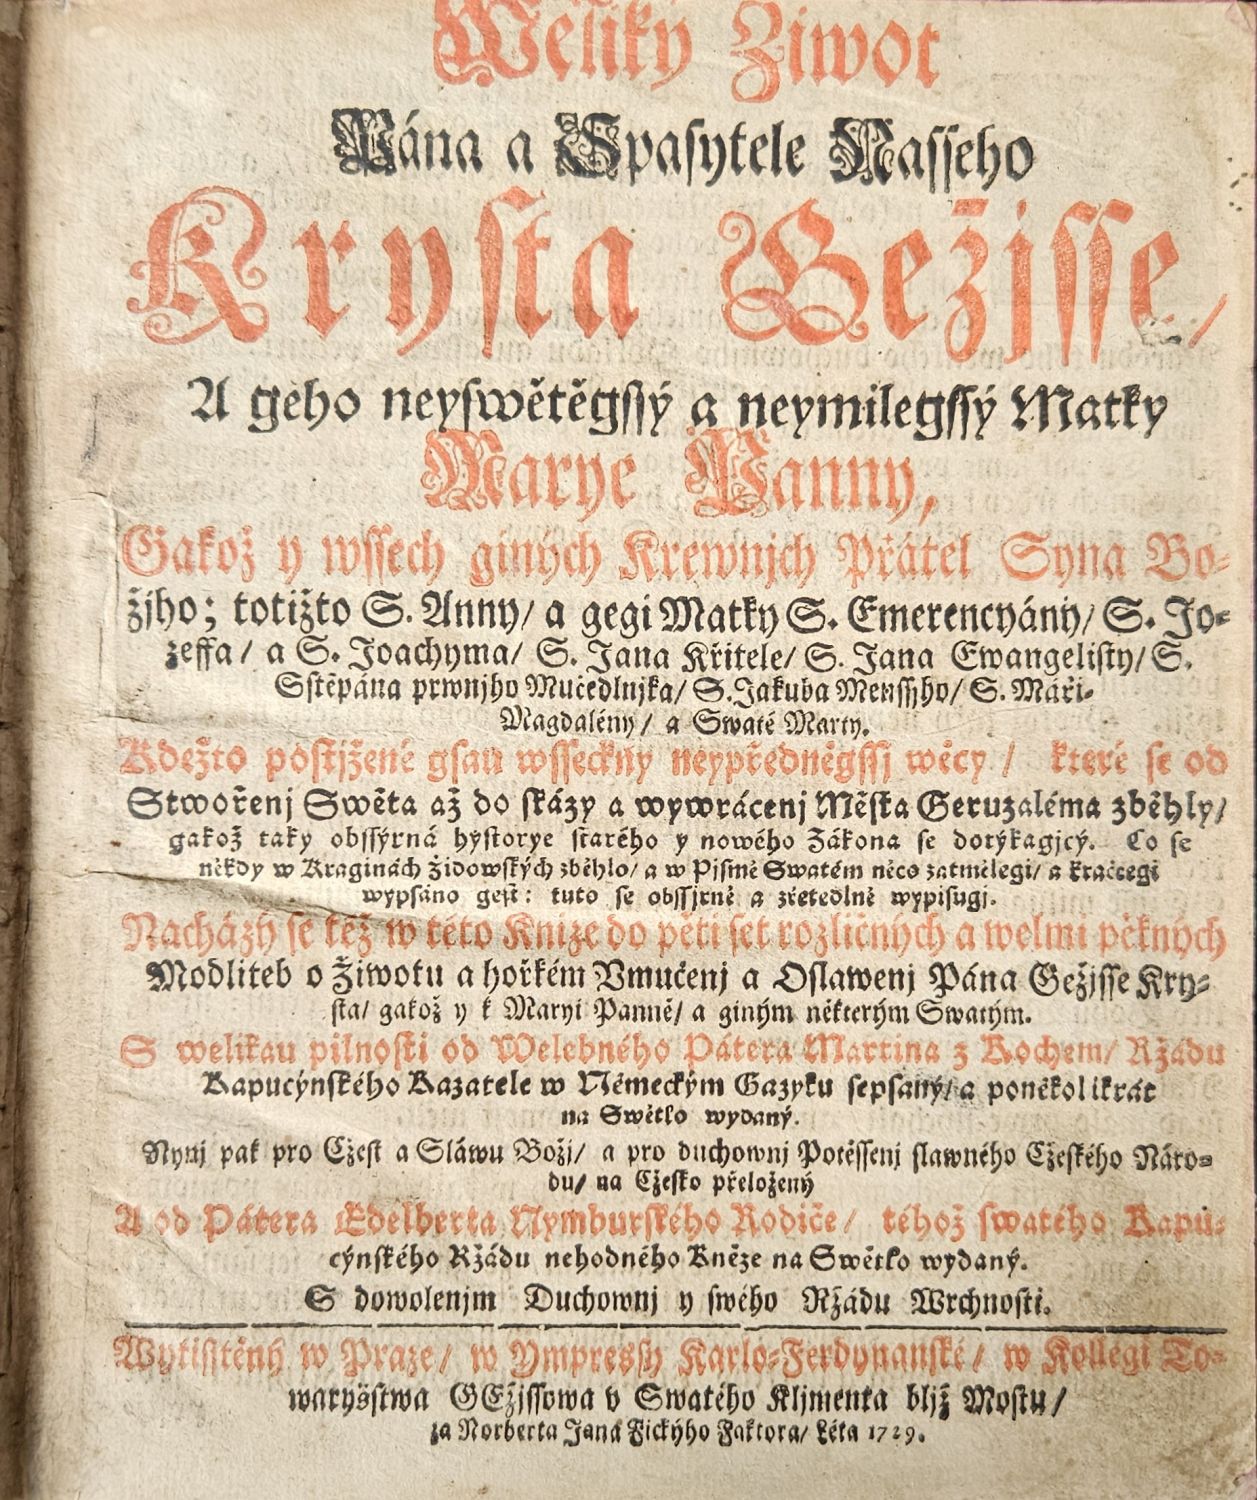 Weliký Žiwot
Pána a Spasytele Nasseho
Krysta Gežisse,
A geho neyswětěgssý a neymilegssý Matky
Marye Panny,
Gakož y wssech giných Krewnjch Přátel Syna Bo-
žjho; totižto S. Anny/ a gegi Matky S. Emerencyány/ S. Jo-
zeffa/ a S. Joachyma/ S. Jana Křitele/ S. Jana Ewangelisty/ S.
Sstěpána prwnjho Mučedlnjka/ S. Jakuba Menssjho/ S. Máři-
Magdalény/ a Swaté Marty.
Kdežto postjžené gsau wsseckny neypředněgssj wěcy/ které se od
Stwořenj Swěta až do skázy a wywrácenj Města Geruzaléma zběhly/
gakož taky obssýrná hystorye starého y nowého Zákona se dotýkagjcý. Co se
někdy w Kraginách židowských zběhlo/ a w Pjsmě Swatém něco zatmělegi/ a kračcegi
wypsáno gest: tuto se obssjrně a zřetedlně wypisugj.
Nacházý se též w této Knize do pěti set rozličných a welmi pěkných
Modliteb o Žiwotu a hořkém Vmučenj a Oslawenj Pána Gežisse Kry-
sta/ gakož y k Maryi Panně/ a giným některým Swatým.
S welikau pilnosti od Welebného Pátera Martina z Kochem/ Ržádu
Kapucýnského Kazatele w Německým Gazyku sepsaný/ a poněkolikrát
na Swětlo wydaný.
Nynj pak pro Cžest a Sláwu Božj/ a pro duchownj Potěssenj slawného Cžeského Náro-
du/ na Cžesko přeložený
A od Pátera Edelberta Nymburského Rodiče/ téhož swatého Kapu-
cýnského Ržádu nehodného Kněze na Swětlo wydaný.
S dowolenjm Duchownj y swého Ržádu Wrchnosti.
Wytisstěný w Praze/ w Ympressy Karlo-Ferdynanské/ w Kollegi To-
waryšstwa GEžissowa v Swatého Kljmenta bljž Mostu/
za Norberta Jana Fickýho Faktora/ Léta 1729.